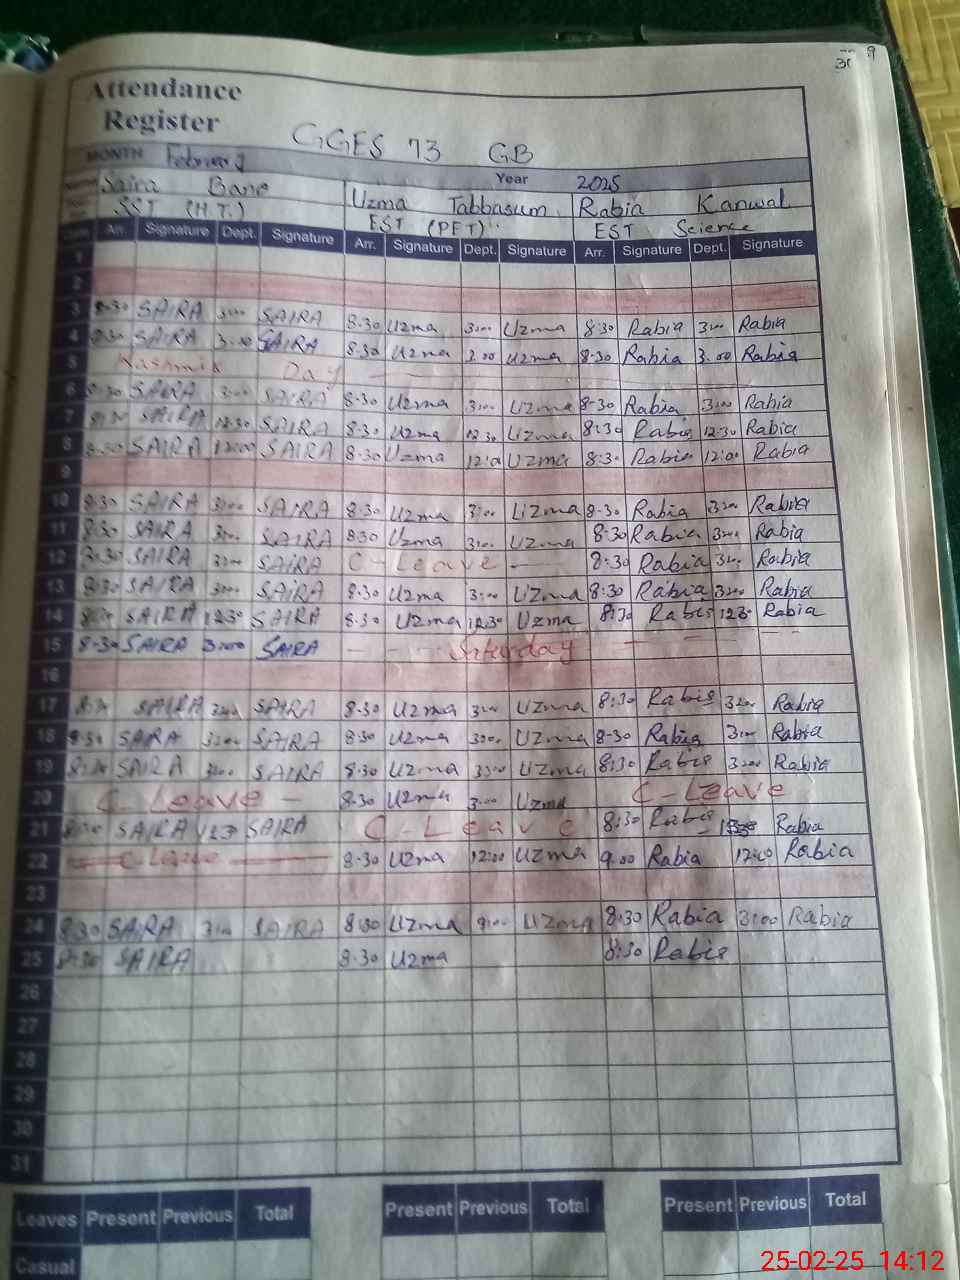 31 9
Attendance
Register
GGES 73 GB
MONTH February Year 2025
Saira Bano Uzma Tabbasum Rabia Kanwal
SST (H.T.) EST (PET) EST Science
Date Arr. Signature Dept. Signature Arr. Signature Dept. Signature Arr. Signature Dept. Signature
1
2
3 8-30 SAIRA 3:00 SAIRA 8-30 Uzma 3:00 Uzma 8:30 Rabia 3:00 Rabia
4 8:30 SAIRA 3.00 SAIRA 8-30 Uzma 3.00 Uzma 8-30 Rabia 3.00 Rabia
5 Kashmir Day
6 8:30 SAIRA 3:00 SAIRA 8-30 Uzma 3:00 Uzma 8-30 Rabia 3:00 Rabia
7 8:30 SAIRA 12:30 SAIRA 8-30 Uzma 12:30 Uzma 8:30 Rabia 12:30 Rabia
8 8:30 SAIRA 12:00 SAIRA 8-30 Uzma 12:00 Uzma 8:30 Rabia 12:00 Rabia
9
10 8:30 SAIRA 3:00 SAIRA 8-30 Uzma 3:00 Uzma 8-30 Rabia 3:00 Rabia
11 8:30 SAIRA 3:00 SAIRA 8:30 Uzma 3:00 Uzma 8:30 Rabia 3:00 Rabia
12 8:30 SAIRA 3:00 SAIRA C-Leave 8:30 Rabia 3:00 Rabia
13 8:30 SAIRA 3:00 SAIRA 8-30 Uzma 3:00 Uzma 8:30 Rabia 3:00 Rabia
14 8:30 SAIRA 12:30 SAIRA 8-30 Uzma 12:30 Uzma 8:30 Rabia 12:30 Rabia
15 8-30 SAIRA 3:00 SAIRA - - - Saturday - -
16
17 8:30 SAIRA 3:00 SAIRA 8-30 Uzma 3:00 Uzma 8:30 Rabia 3:00 Rabia
18 8:30 SAIRA 3:00 SAIRA 8:30 Uzma 3:00 Uzma 8-30 Rabia 3:00 Rabia
19 8:30 SAIRA 3:00 SAIRA 8:30 Uzma 3:00 Uzma 8:30 Rabia 3:00 Rabia
20 C-Leave - 8:30 Uzma 3:00 Uzma C-Leave
21 8:30 SAIRA 12:30 SAIRA C-Leave 8:30 Rabia Rabia
22 C-Leave 8-30 Uzma 12:00 Uzma 9.00 Rabia 12:00 Rabia
23
24 8:30 SAIRA 3:00 SAIRA 8:30 Uzma Uzma 8:30 Rabia 3:00 Rabia
25 8:30 SAIRA 8-30 Uzma 8:30 Rabia
26
27
28
29
30
31
Leaves Present Previous Total Present Previous Total Present Previous Total
Casual
25-02-25 14:12